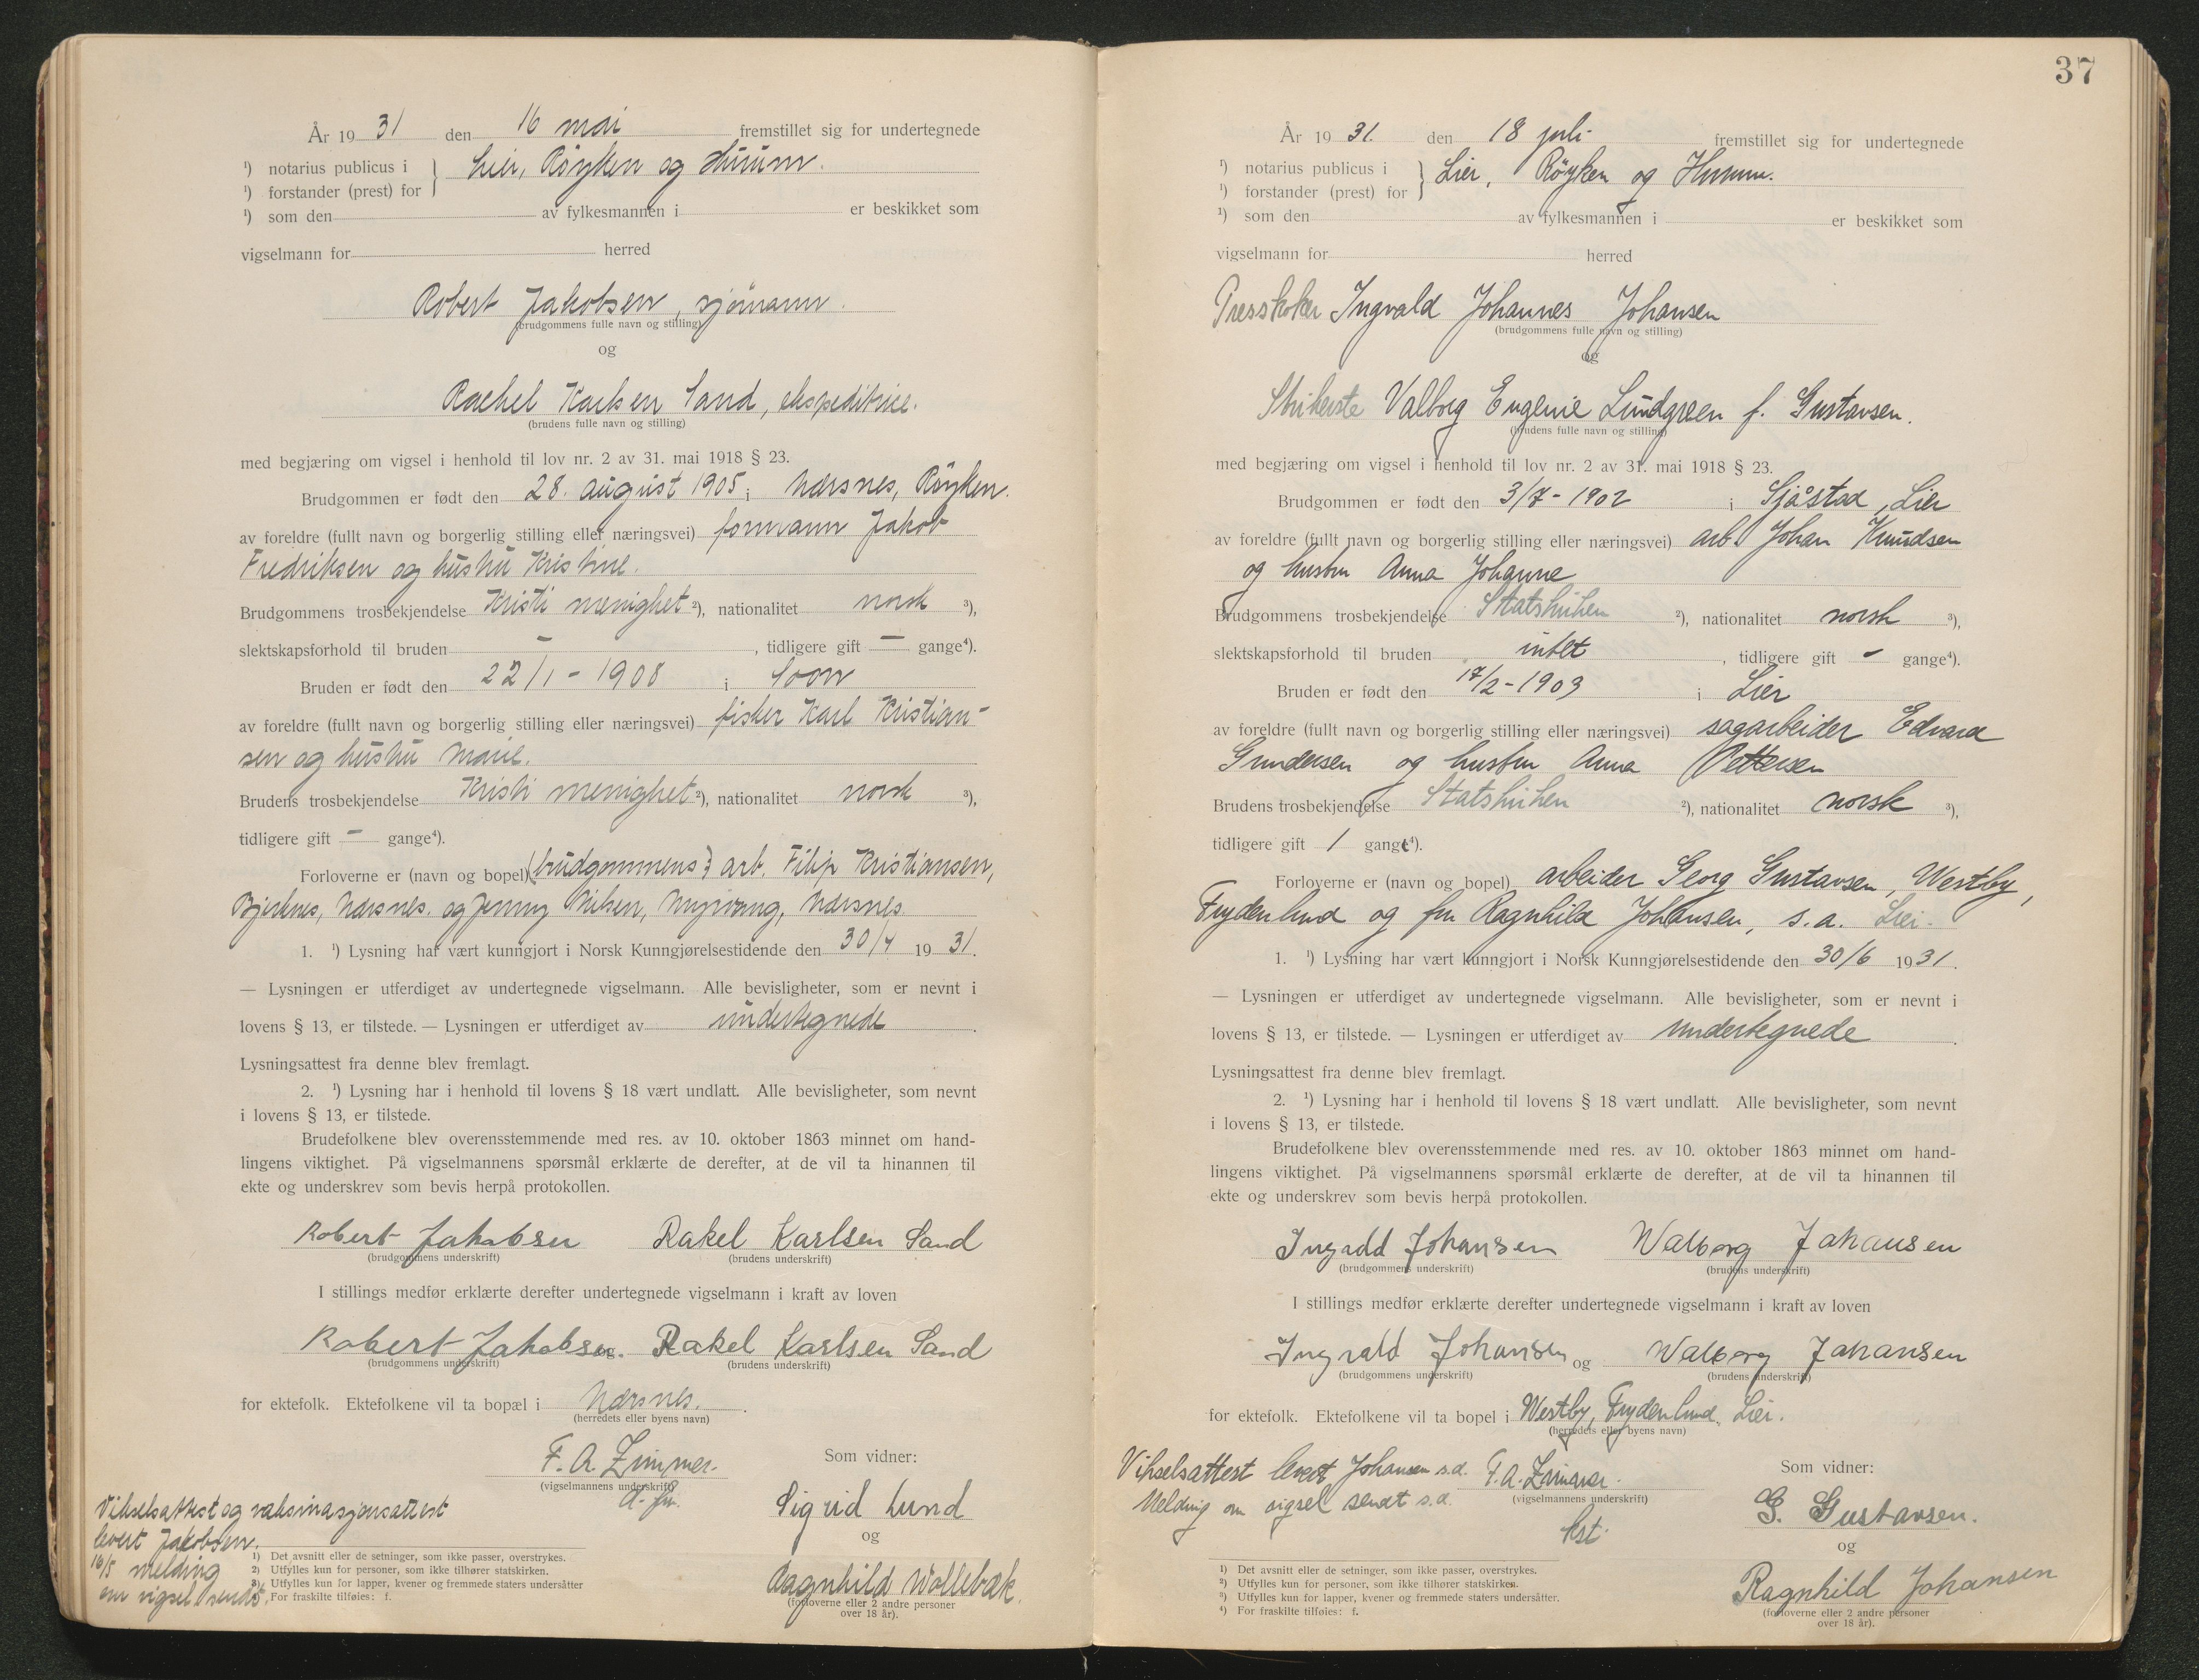 År 19 31 den 16 mai fremstillet sig for undertegnede
¹) notarius publicus i } Lier, Röyken og Hurum.
¹) forstander (prest) for
¹) som den av fylkesmannen i er beskikket som
vigselmann for herred
Robert Jakobsen, sjömann.
(brudgommens fulle navn og stilling)
og
Rachel Karlsen Sand, ekspeditrice.
(brudens fulle navn og stilling)
med begjæring om vigsel i henhold til lov nr. 2 av 31. mai 1918 § 23.
Brudgommen er født den 28. august 1905 i Nærsnes, Röyken.
av foreldre (fullt navn og borgerlig stilling eller næringsvei) formann Jakob
Fredriksen og hustru Kristine.
Brudgommens trosbekjendelse Kristi menighet ²), nationalitet norsk ³),
slektskapsforhold til bruden — , tidligere gift — gange⁴).
Bruden er født den 22/1 - 1908 i Soon
av foreldre (fullt navn og borgerlig stilling eller næringsvei) fisker Karl Kristian-
sen og hustru Marie.
Brudens trosbekjendelse Kristi menighet ²), nationalitet norsk ³),
tidligere gift — gange⁴).
Forloverne er (navn og bopel) (brudgommens:) arb. Filip Kristiansen,
Bjerknes, Nærsnes. og Jenny Nilsen, Myrvang, Nærsnes
1. ¹) Lysning har vært kunngjort i Norsk Kunngjørelsestidende den 30/4 19 31.
— Lysningen er utferdiget av undertegnede vigselmann. Alle bevisligheter, som er nevnt i
lovens § 13, er tilstede. — Lysningen er utferdiget av undertegnede .
Lysningsattest fra denne blev fremlagt.
2. ¹) Lysning har i henhold til lovens § 18 vært undlatt. Alle bevisligheter, som nevnt
i lovens § 13, er tilstede.
Brudefolkene blev overensstemmende med res. av 10. oktober 1863 minnet om hand-
lingens viktighet. På vigselmannens spørsmål erklærte de derefter, at de vil ta hinannen til
ekte og underskrev som bevis herpå protokollen.
Robert Jakobsen Rakel Karlsen Sand
(brudgommens underskrift) (brudens underskrift)
I stillings medfør erklærte derefter undertegnede vigselmann i kraft av loven
Robert Jakobsen. og Rakel Karlsen Sand
(brudgommens underskrift) (brudens underskrift)
for ektefolk. Ektefolkene vil ta bopæl i Nærsnes.
(herredets eller byens navn)
F. A. Zimmer.
(vigselmannens underskrift)
Som vidner:
Sigrid Lund
og
Ragnhild Wollebæk.
(forloverne eller 2 andre personer
over 18 år).
Vikselsattest og vaksinasjonsattest
levert Jakobsen.
16/5 melding
om vigsel sendt.
1) Det avsnitt eller de setninger, som ikke passer, overstrykes.
2) Utfylles kun for personer, som ikke tilhører statskirken.
3) Utfylles kun for lapper, kvener og fremmede staters undersåtter
4) For fraskilte tilføies: f.
37
År 19 31. den 18 juli fremstillet sig for undertegnede
¹) notarius publicus i } Lier, Röyken og Hurum.
¹) forstander (prest) for
¹) som den av fylkesmannen i er beskikket som
vigselmann for herred
Presskoker Ingvald Johannes Johansen
(brudgommens fulle navn og stilling)
og
Strikerste Valborg Eugenie Lundgreen f. Gustavsen.
(brudens fulle navn og stilling)
med begjæring om vigsel i henhold til lov nr. 2 av 31. mai 1918 § 23.
Brudgommen er født den 3/7 - 1902 i Sjåstad, Lier
av foreldre (fullt navn og borgerlig stilling eller næringsvei) arb. Johan Knudsen
og hustru Anna Johanne
Brudgommens trosbekjendelse Statskirken ²), nationalitet norsk ³),
slektskapsforhold til bruden intet , tidligere gift - gange⁴).
Bruden er født den 17/2 - 1903 i Lier
av foreldre (fullt navn og borgerlig stilling eller næringsvei) sagarbeider Edvard
Gundersen og hustru Anna Pettersen
Brudens trosbekjendelse Statskirken ²), nationalitet norsk ³),
tidligere gift 1 gang⁴).
Forloverne er (navn og bopel) arbeider Georg Gustavsen, Westby,
Frydenlund og fru Ragnhild Johansen, s.a. Lier.
1. ¹) Lysning har vært kunngjort i Norsk Kunngjørelsestidende den 30/6 19 31.
— Lysningen er utferdiget av undertegnede vigselmann. Alle bevisligheter, som er nevnt i
lovens § 13, er tilstede. — Lysningen er utferdiget av undertegnede .
Lysningsattest fra denne blev fremlagt.
2. ¹) Lysning har i henhold til lovens § 18 vært undlatt. Alle bevisligheter, som nevnt
i lovens § 13, er tilstede.
Brudefolkene blev overensstemmende med res. av 10. oktober 1863 minnet om hand-
lingens viktighet. På vigselmannens spørsmål erklærte de derefter, at de vil ta hinannen til
ekte og underskrev som bevis herpå protokollen.
Ingvald Johansen Walborg Johansen
(brudgommens underskrift) (brudens underskrift)
I stillings medfør erklærte derefter undertegnede vigselmann i kraft av loven
Ingvald Johansen og Walborg Johansen
(brudgommens underskrift) (brudens underskrift)
for ektefolk. Ektefolkene vil ta bopel i Westby, Frydenlund, Lier.
(herredets eller byens navn)
Vikselsattest levert Johansen s.d. F. A. Zimmer.
Melding om vigsel sendt s.d. (vigselmannens underskrift)
kst.
Som vidner:
G. Gustavsen.
og
Ragnhild Johansen
(forloverne eller 2 andre personer
over 18 år).
¹) Det avsnitt eller de setninger, som ikke passer, overstrykes.
²) Utfylles kun for personer, som ikke tilhører statskirken.
³) Utfylles kun for lapper, kvener og fremmede staters undersåtter.
⁴) For fraskilte tilføies: f.